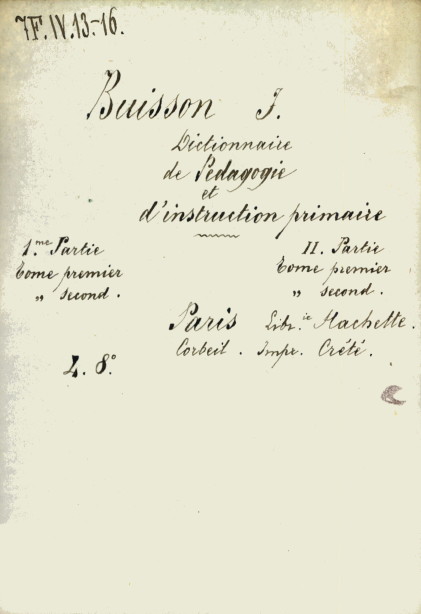 7F.IV.13.-16.
Buisson F.
Dictionnaire
de Pédagogie
et
d'instruction primaire
1.me Partie
Tome premier
„ second.
II. Partie
Tome premier
„ second.
Paris Libr.ie Hachette.
Corbeil. Impr. Crété.
4. 8.°